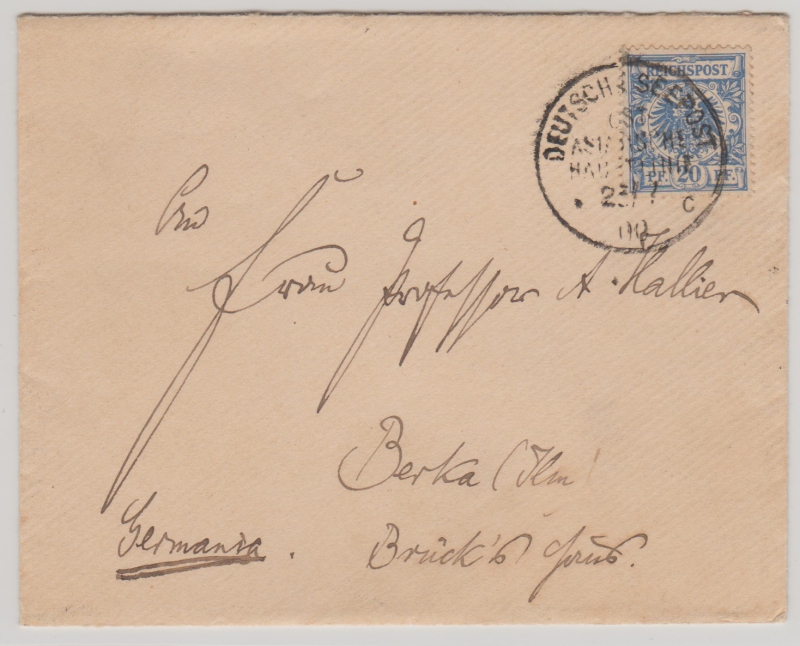 REICHSPOST
PF. 20 PF.
DEUTSCHE SEEPOST
OST
ASIATISCHE
HAUPTLINIE
23/7
c
00
An
Frau Professor A. Hallier
Berka (Ilm)
Germania. Brück's Haus.